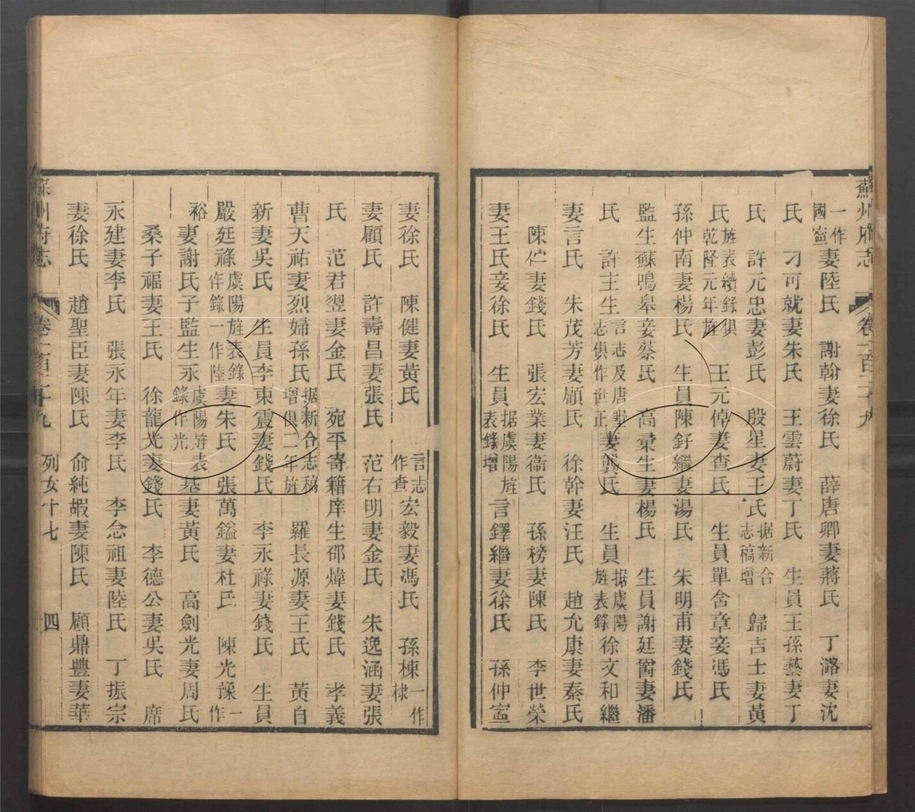 蘇州府志 卷一百二十九
一作國寍妻陸氏 謝翰妻徐氏 薛唐卿妻蔣氏 丁潞妻沈
氏 刁可就妻朱氏 王雲蔚妻丁氏 生員王孫藝妻丁
氏 許元忠妻彭氏 殷星妻王氏据新合志稿增 歸吉士妻黃
氏旌表續錄俱乾隆元年旌 王元倬妻查氏 生員單含章妾馮氏
孫仲南妻楊氏 生員陳釪繼妻湯氏 朱明甫妻錢氏
監生蘇鳴皋妾蔡氏 高彙生妻楊氏 生員謝廷爵妻潘
氏 許主生言志及唐志俱作世正妻龔氏 生員据虞陽旌表錄徐文和繼
妻言氏 朱茂芳妻顧氏 徐幹妻汪氏 趙允康妻秦氏
陳伫妻錢氏 張宏業妻衞氏 孫榜妻陳氏 李世榮
妻王氏妾徐氏 生員据虞陽旌表錄增言鐸繼妻徐氏 孫仲寍
妻徐氏 陳健妻黃氏 言志作查宏毅妻馮氏 孫棟一作棣
妻顧氏 許壽昌妻張氏 范右明妻金氏 朱逸涵妻張
氏 范君翌妻金氏 宛平寄籍庠生邵煒妻錢氏 孝義
曹天祐妻烈婦孫氏据新合志稿增俱二年旌 羅長源妻王氏 黃自
新妻吳氏 生員李東震妻錢氏 李永祿妻錢氏 生員
嚴廷祿虞陽旌表錄作錄一作陸妻朱氏 張萬鎰妻杜氏 陳光䕫一作
裕妻謝氏子監生永虞陽旌表錄作光基妻黃氏 高劍光妻周氏
桑子福妻王氏 徐龍光妻錢氏 李德公妻吳氏 席
永建妻李氏 張永年妻李氏 李念祖妻陸氏 丁振宗
妻徐氏 趙聖臣妻陳氏 俞純嘏妻陳氏 顧鼎豐妻華
蘇州府志 卷一百二十九 列女十七 四